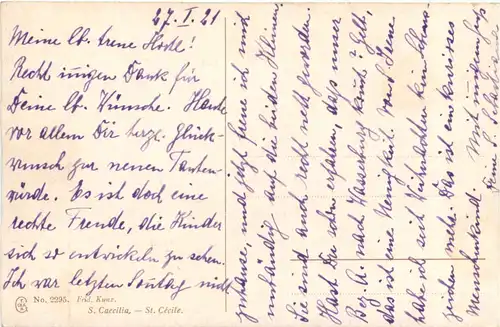 27.I.21
Meine lb. treue Hode!
Recht innigen Dank für
Deine lb. Wünsche. Heute
vor allem Dir herzl. Glück-
wunsch zur neuen Tanten-
würde. Es ist doch eine
rechte Freude, die Kinder
sich so entwickeln zu sehen.
Ich war letzten Sonntag nicht
zuhause, und jetzt freue ich mich
unbändig auf die beiden Kleinen.
Sie sind auch recht nett geworden.
Hast Du schon erfahren, dass unser
Bez. A. nach Wasserburg kommt? Gelt,
das ist eine Neuigkeit. Von Irene
habe ich seit Weihnachten kein Lebens-
zeichen mehr. Das ist ein
Menschenkind. Mit innigem Gruß
Dein
No. 2295. Frd. Kunz.
S. Caecilia. — St. Cécile.